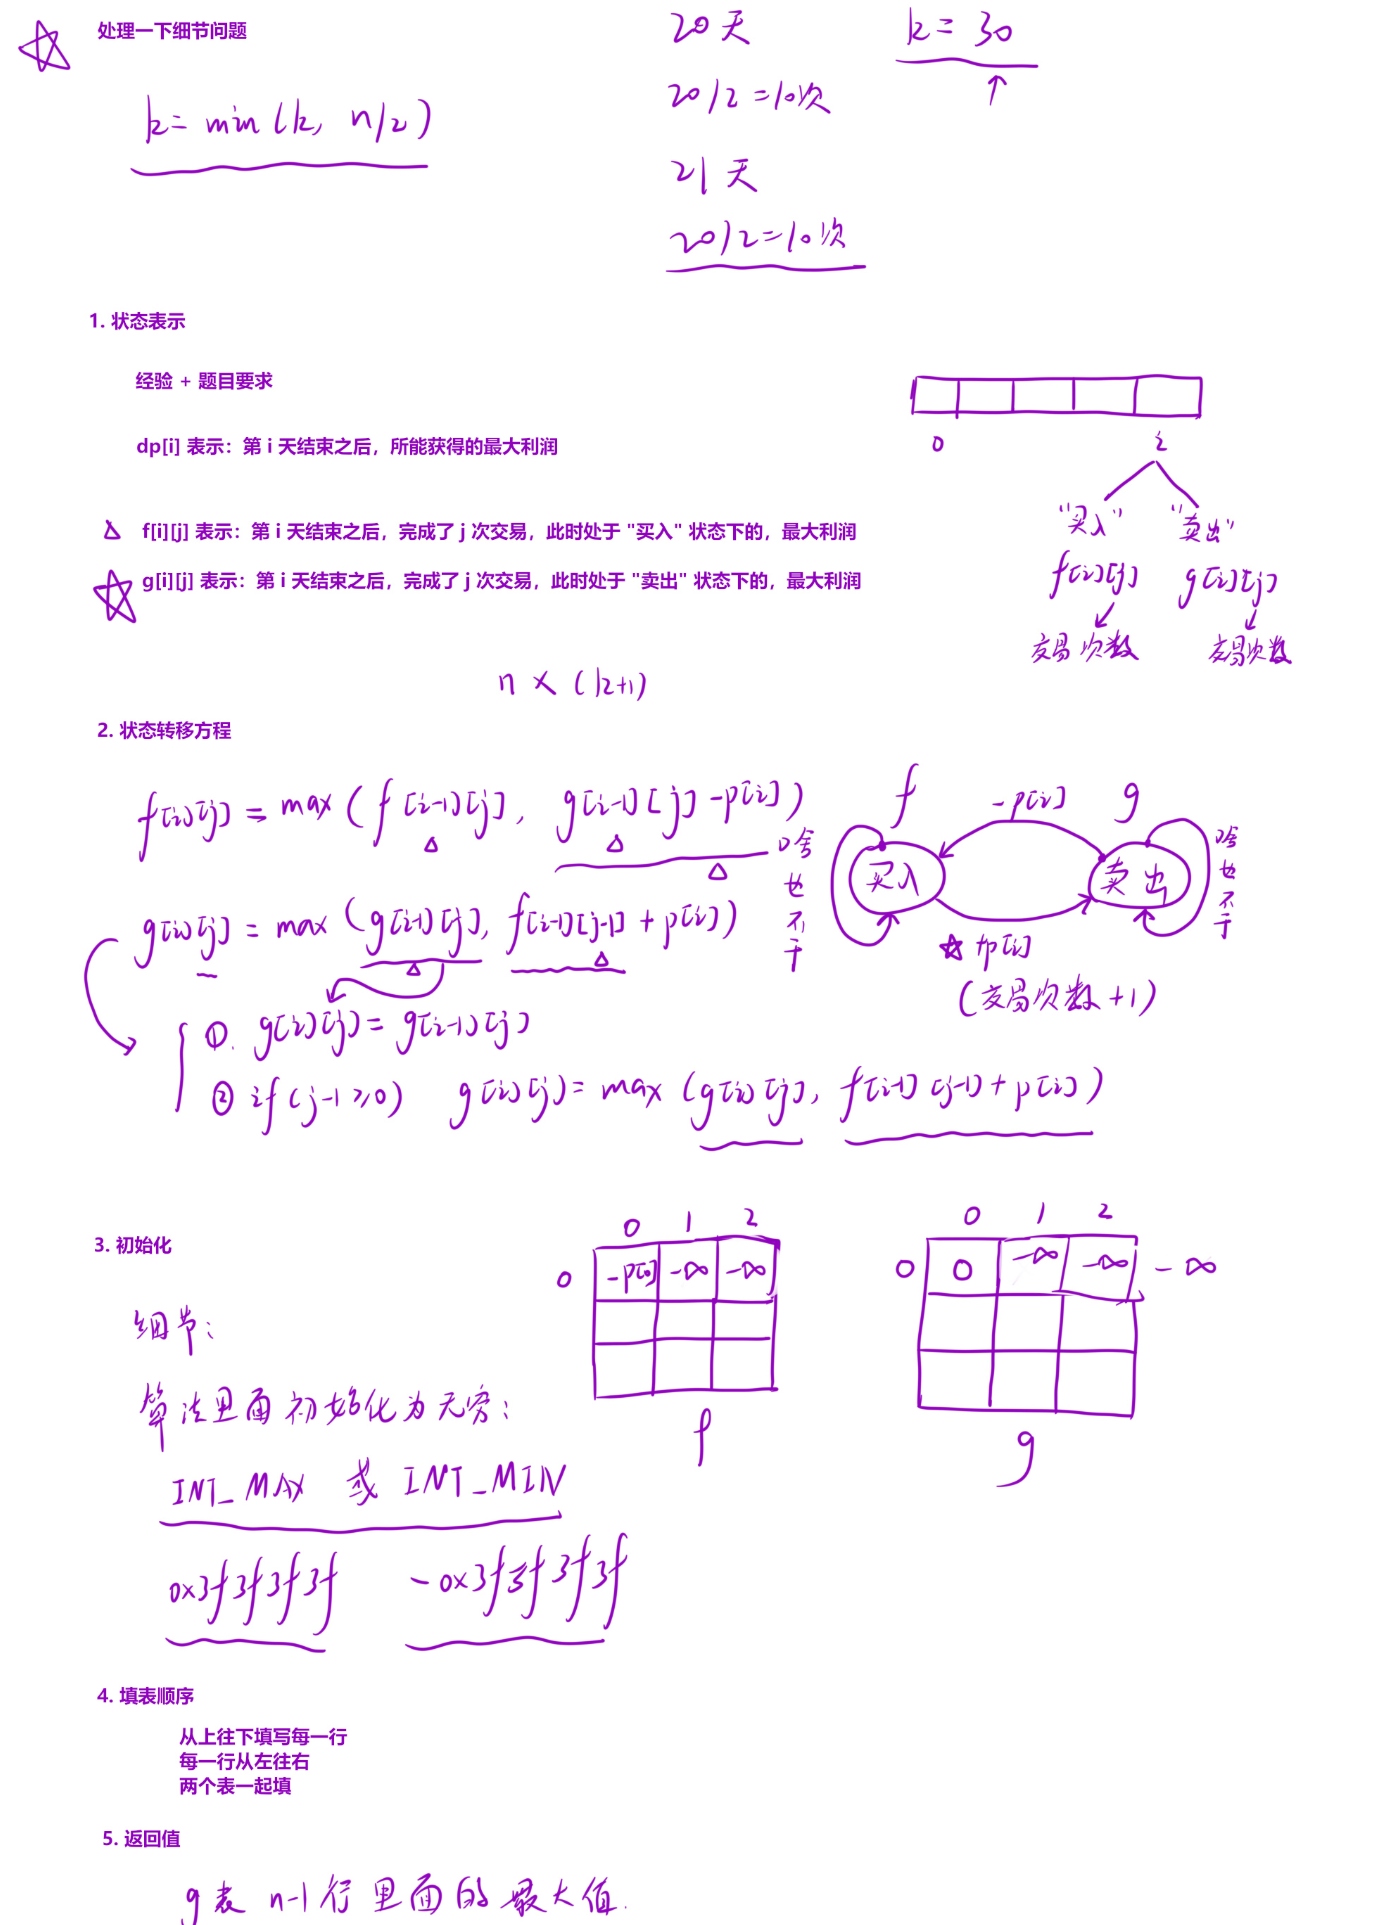 处理一下细节问题
k = min(k, n/2)
20天
k = 30
20/2=10次
21天
20/2=10次
1. 状态表示
经验 + 题目要求
dp[i] 表示：第 i 天结束之后，所能获得的最大利润
0 i
"买入" "卖出"
f[i][j] 表示：第 i 天结束之后，完成了 j 次交易，此时处于 "买入" 状态下的，最大利润
g[i][j] 表示：第 i 天结束之后，完成了 j 次交易，此时处于 "卖出" 状态下的，最大利润
f[i][j] g[i][j]
交易次数 交易次数
n × (k+1)
2. 状态转移方程
f[i][j] = max(f[i-1][j], g[i-1][j]-p[i])
g[i][j] = max(g[i-1][j], f[i-1][j-1]+p[i])
f -p[i] g
啥也不干 买入 卖出 啥也不干
+p[i]
(交易次数+1)
① g[i][j] = g[i-1][j]
② if(j-1≥0) g[i][j] = max(g[i][j], f[i-1][j-1]+p[i])
3. 初始化
0 1 2
0 -p[0] -∞ -∞
f
0 1 2
0 0 -∞ -∞ -∞
g
细节：
算法里面初始化为无穷：
INT_MAX 或 INT_MIN
0x3f3f3f3f -0x3f3f3f3f
4. 填表顺序
从上往下填写每一行
每一行从左往右
两个表一起填
5. 返回值
g表 n-1行里面的最大值.